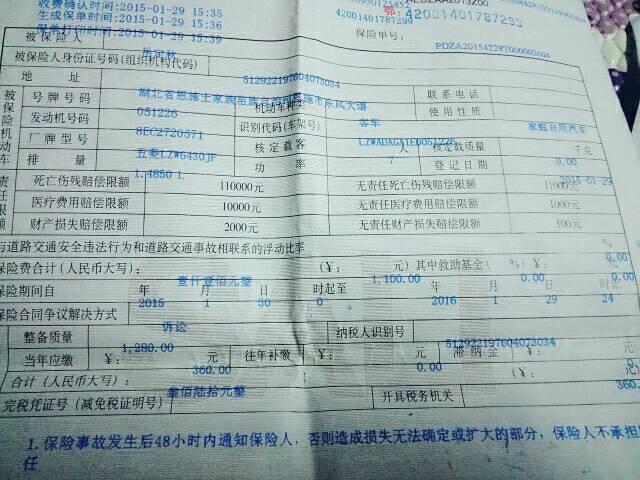 收费确认时间:2015-01-29 15:35
生成保单时间:2015-01-29 15:35
保单打印时间:2015-01-29 15:39
鄂:42001401787299
42001401787299
保险单号: PDZA20154228T000002604
被保险人
被保险人身份证号码(组织机构代码)
512922197604073034
地址 联系电话
湖北省恩施土家族苗族自治州恩施市东风大道
号牌号码 机动车种类 使用性质
051226 客车 家庭自用汽车
发动机号码 识别代码(车架号)
8EC2720571
厂牌型号 核定载客 人 核定载质量 千克
五菱LZW6430JF 7 0.00
排量 功率 登记日期
1.4850 L 2015-01-29
死亡伤残赔偿限额 110000元 无责任死亡伤残赔偿限额 11000元
医疗费用赔偿限额 10000元 无责任医疗费用赔偿限额 1000元
财产损失赔偿限额 2000元 无责任财产损失赔偿限额 100元
与道路交通安全违法行为和道路交通事故相联系的浮动比率
0.00
保险费合计(人民币大写): (¥: 元)其中救助基金( %)¥:
壹仟壹佰元整 1,100.00 0.00 0.00
保险期间自 年 月 日 时起至 年 月 日
2015 1 30 0 2016 1 29 24
保险合同争议解决方式
诉讼
整备质量 纳税人识别号
1,280.00 512922197604073034
当年应缴 ¥: 元 往年补缴 ¥: 元 滞纳金 ¥:
360.00 0.00 0.00
合计(人民币大写): (¥:
叁佰陆拾元整 360.
完税凭证号(减免税证明号) 开具税务机关
1.保险事故发生后48小时内通知保险人，否则造成损失无法确定或扩大的部分，保险人不承担
任